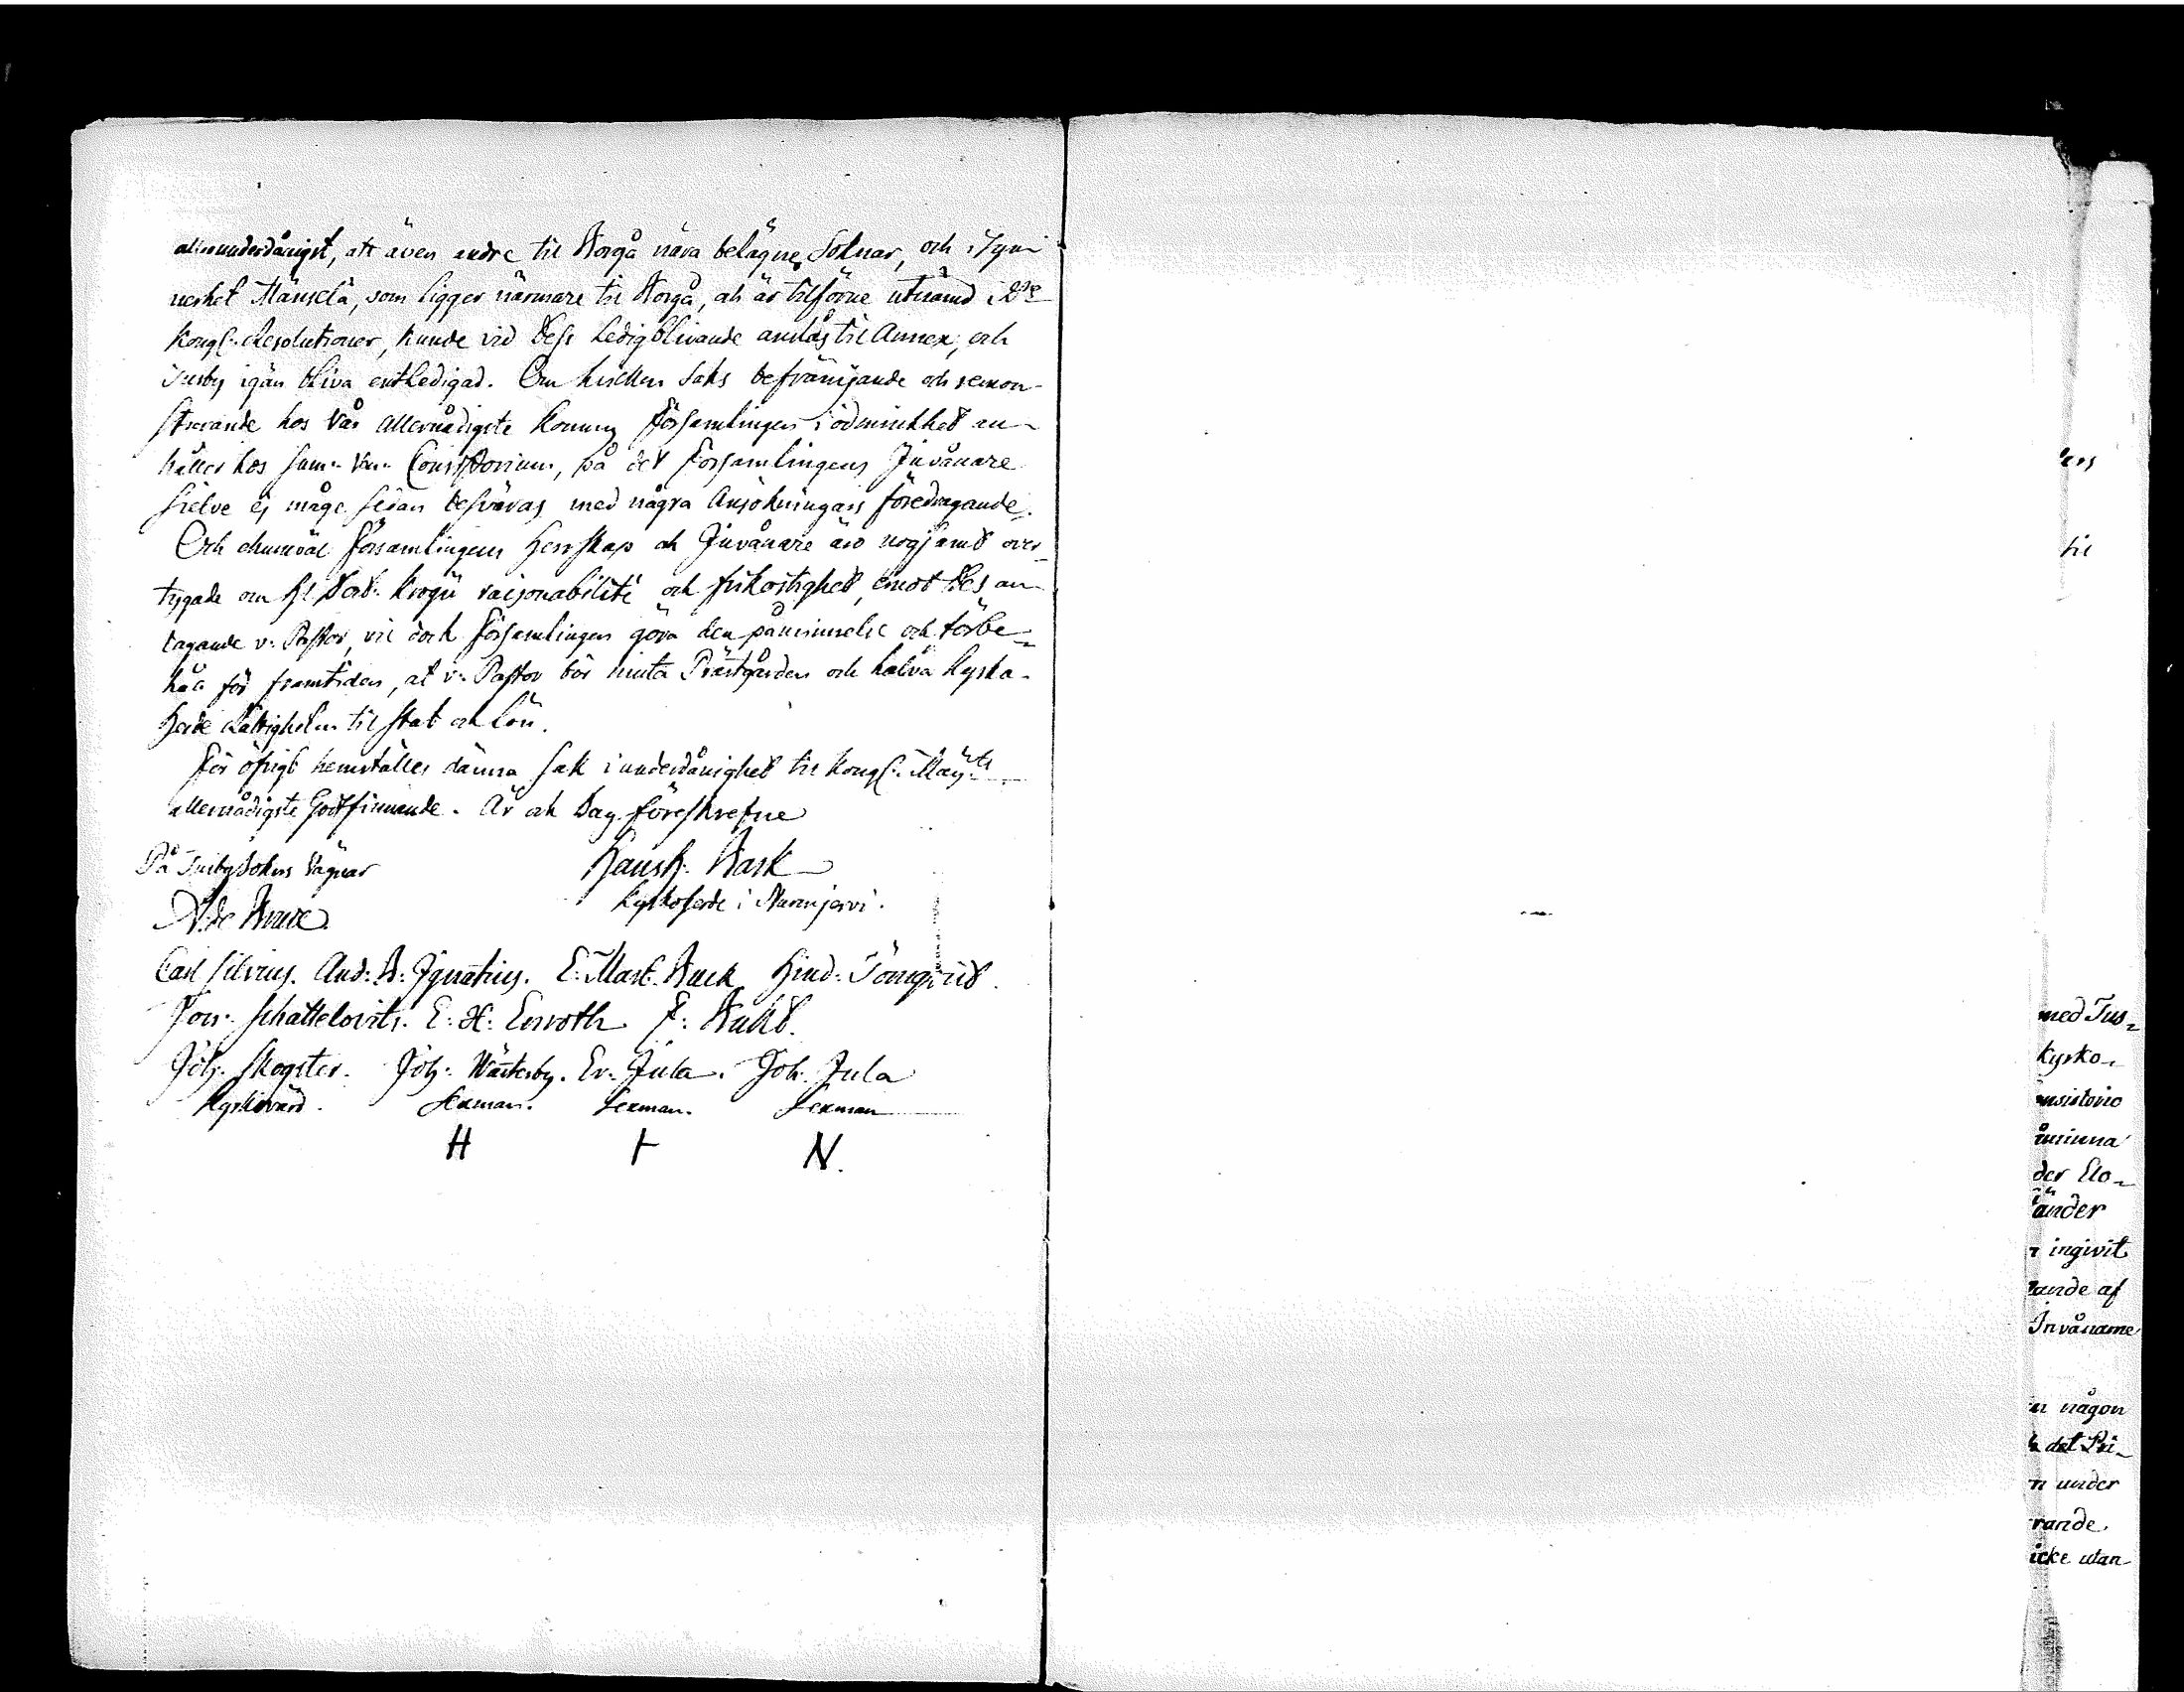 allerunderdånigst, att även andre til Borgå nära belägne Soknar, och i syn-
nerhet Mänselä, som ligger närmare til Borgå, ah är tilförne utnämd i
Kongl. Resolutioner, kunde vid dess Ledigblivande anslås til Annex, och
Tusby igän bliva entledigad. Om hvilken Saks befrämjande och remon-
strerande hos Vår Allernådigste Konung Församlingen i ödmiukhet an-
håller hos Consistorium, på det Församlingens Invånare
sielve ej måge sedan besväras med några Ansökningars föredragande.
Och ehuruväl Församlingens Herrskap och Invånare äro nogsamt över-
tygade om H. Krogii raisonabilité och frikostighet, emot des an-
tagande v. Pastor, vil doch Församlingen göra den påminnelse och förbe-
håll för framtiden, at v. Pastor bör niuta Prästgården och halva Kyrko-
herde Rättigheten til stat och Lön.
För öfrigt hemställes dänna sak i underdånighet til Kongl. Maij:ts
allernådigste Gottfinnande. År och Dag föreskrefne
På Tusby Sokns Vägnar
Hans H. Wark
Kyrkoherde i Nurmjervi.
A. de Bruce
Carl Silvius. And: B: Ignatius. E: Mart. Buck Hind: Tönnqvist.
Jon: Schattelovitz. E: H: Enroth F: Stuhl.
Joh: Skogster. Joh: Wästerby. Er: Jula. Joh. Jula
Kyrkovärd. Sexman. Sexman. Sexman
H
N.
til
med Tus-
kyrko-
der Elo-
änder
ingivit
ande af
Invånarne
någon
det Pri-
under
rande
icke utan